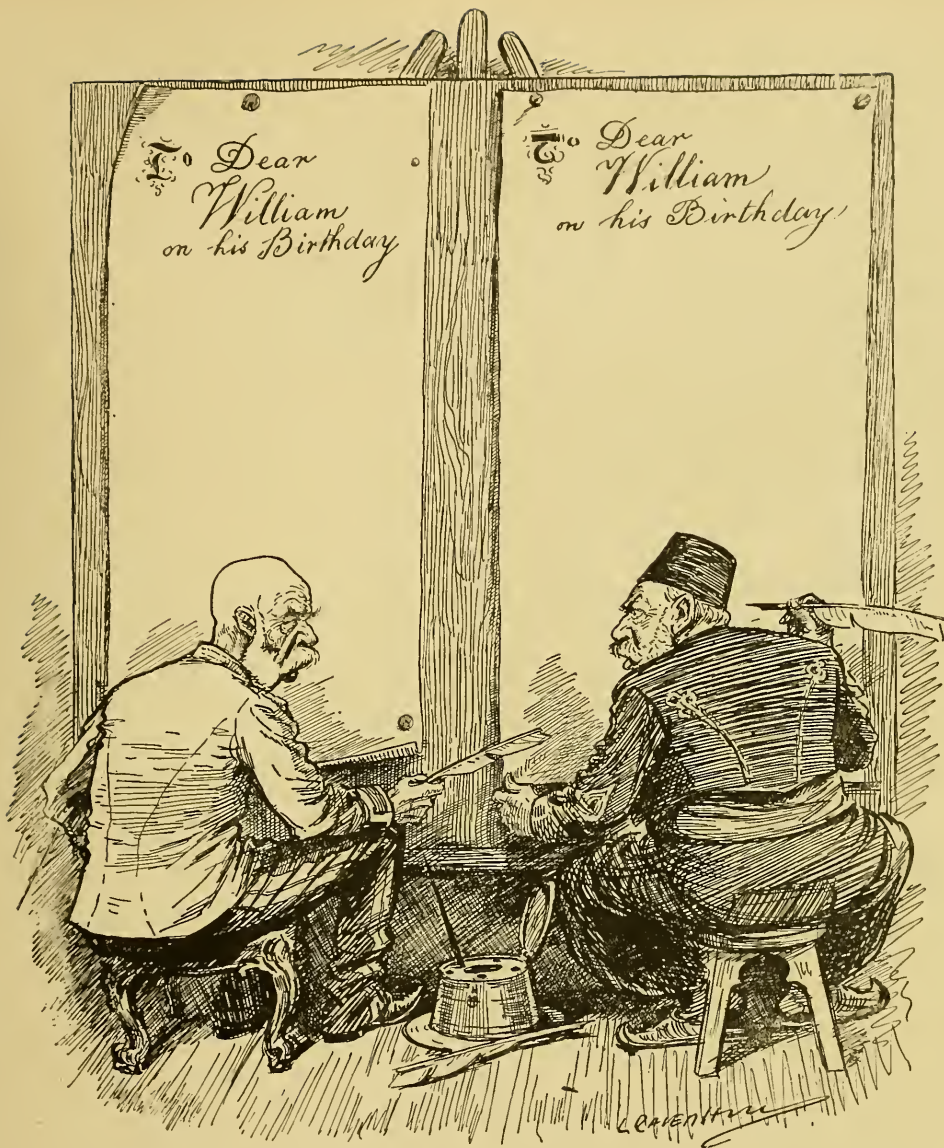 To Dear
William
on his Birthday
To Dear
William
on his Birthday
L. RAVENHILL